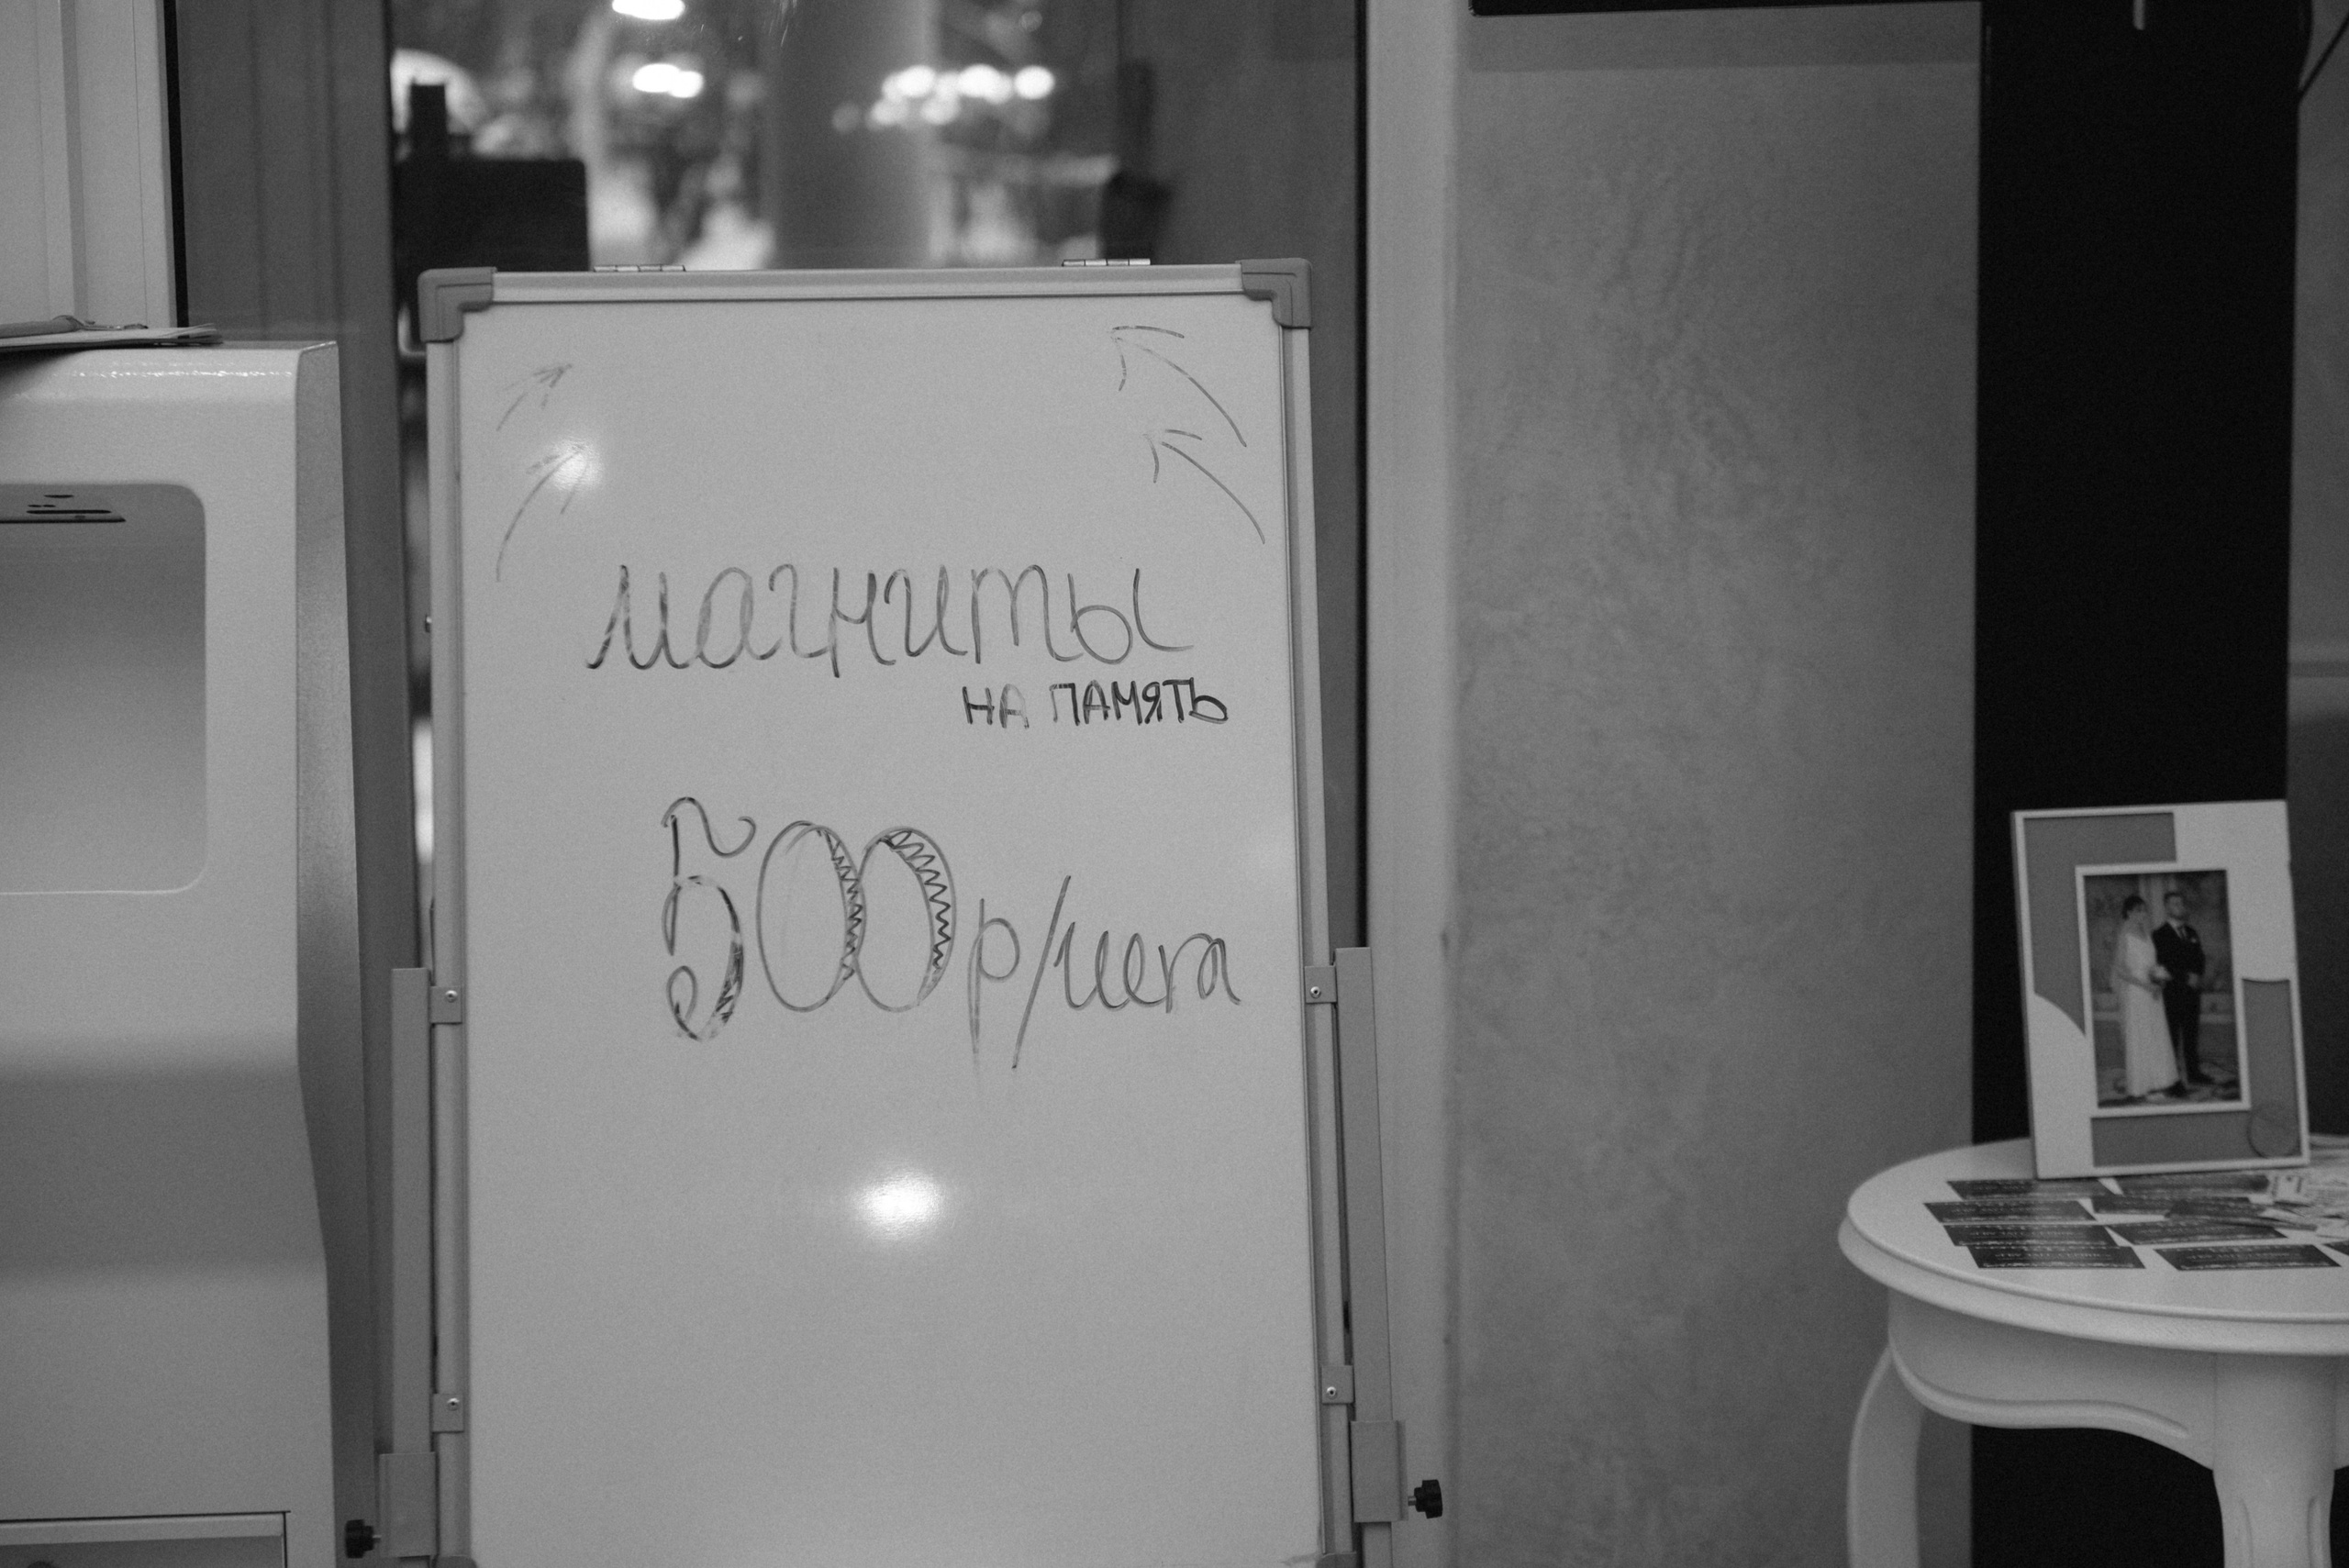 магниты
НА ПАМЯТЬ
500р/